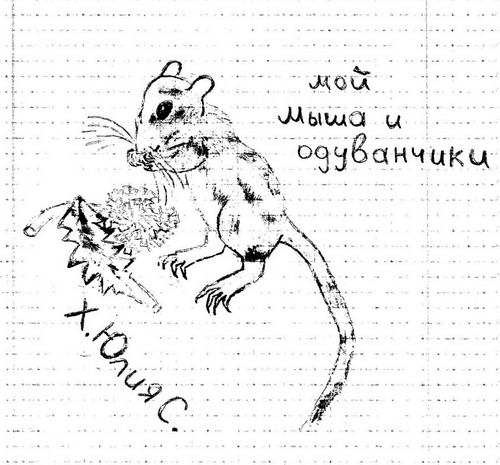 мой
мыша и
одуванчики
Х. Юлия С.